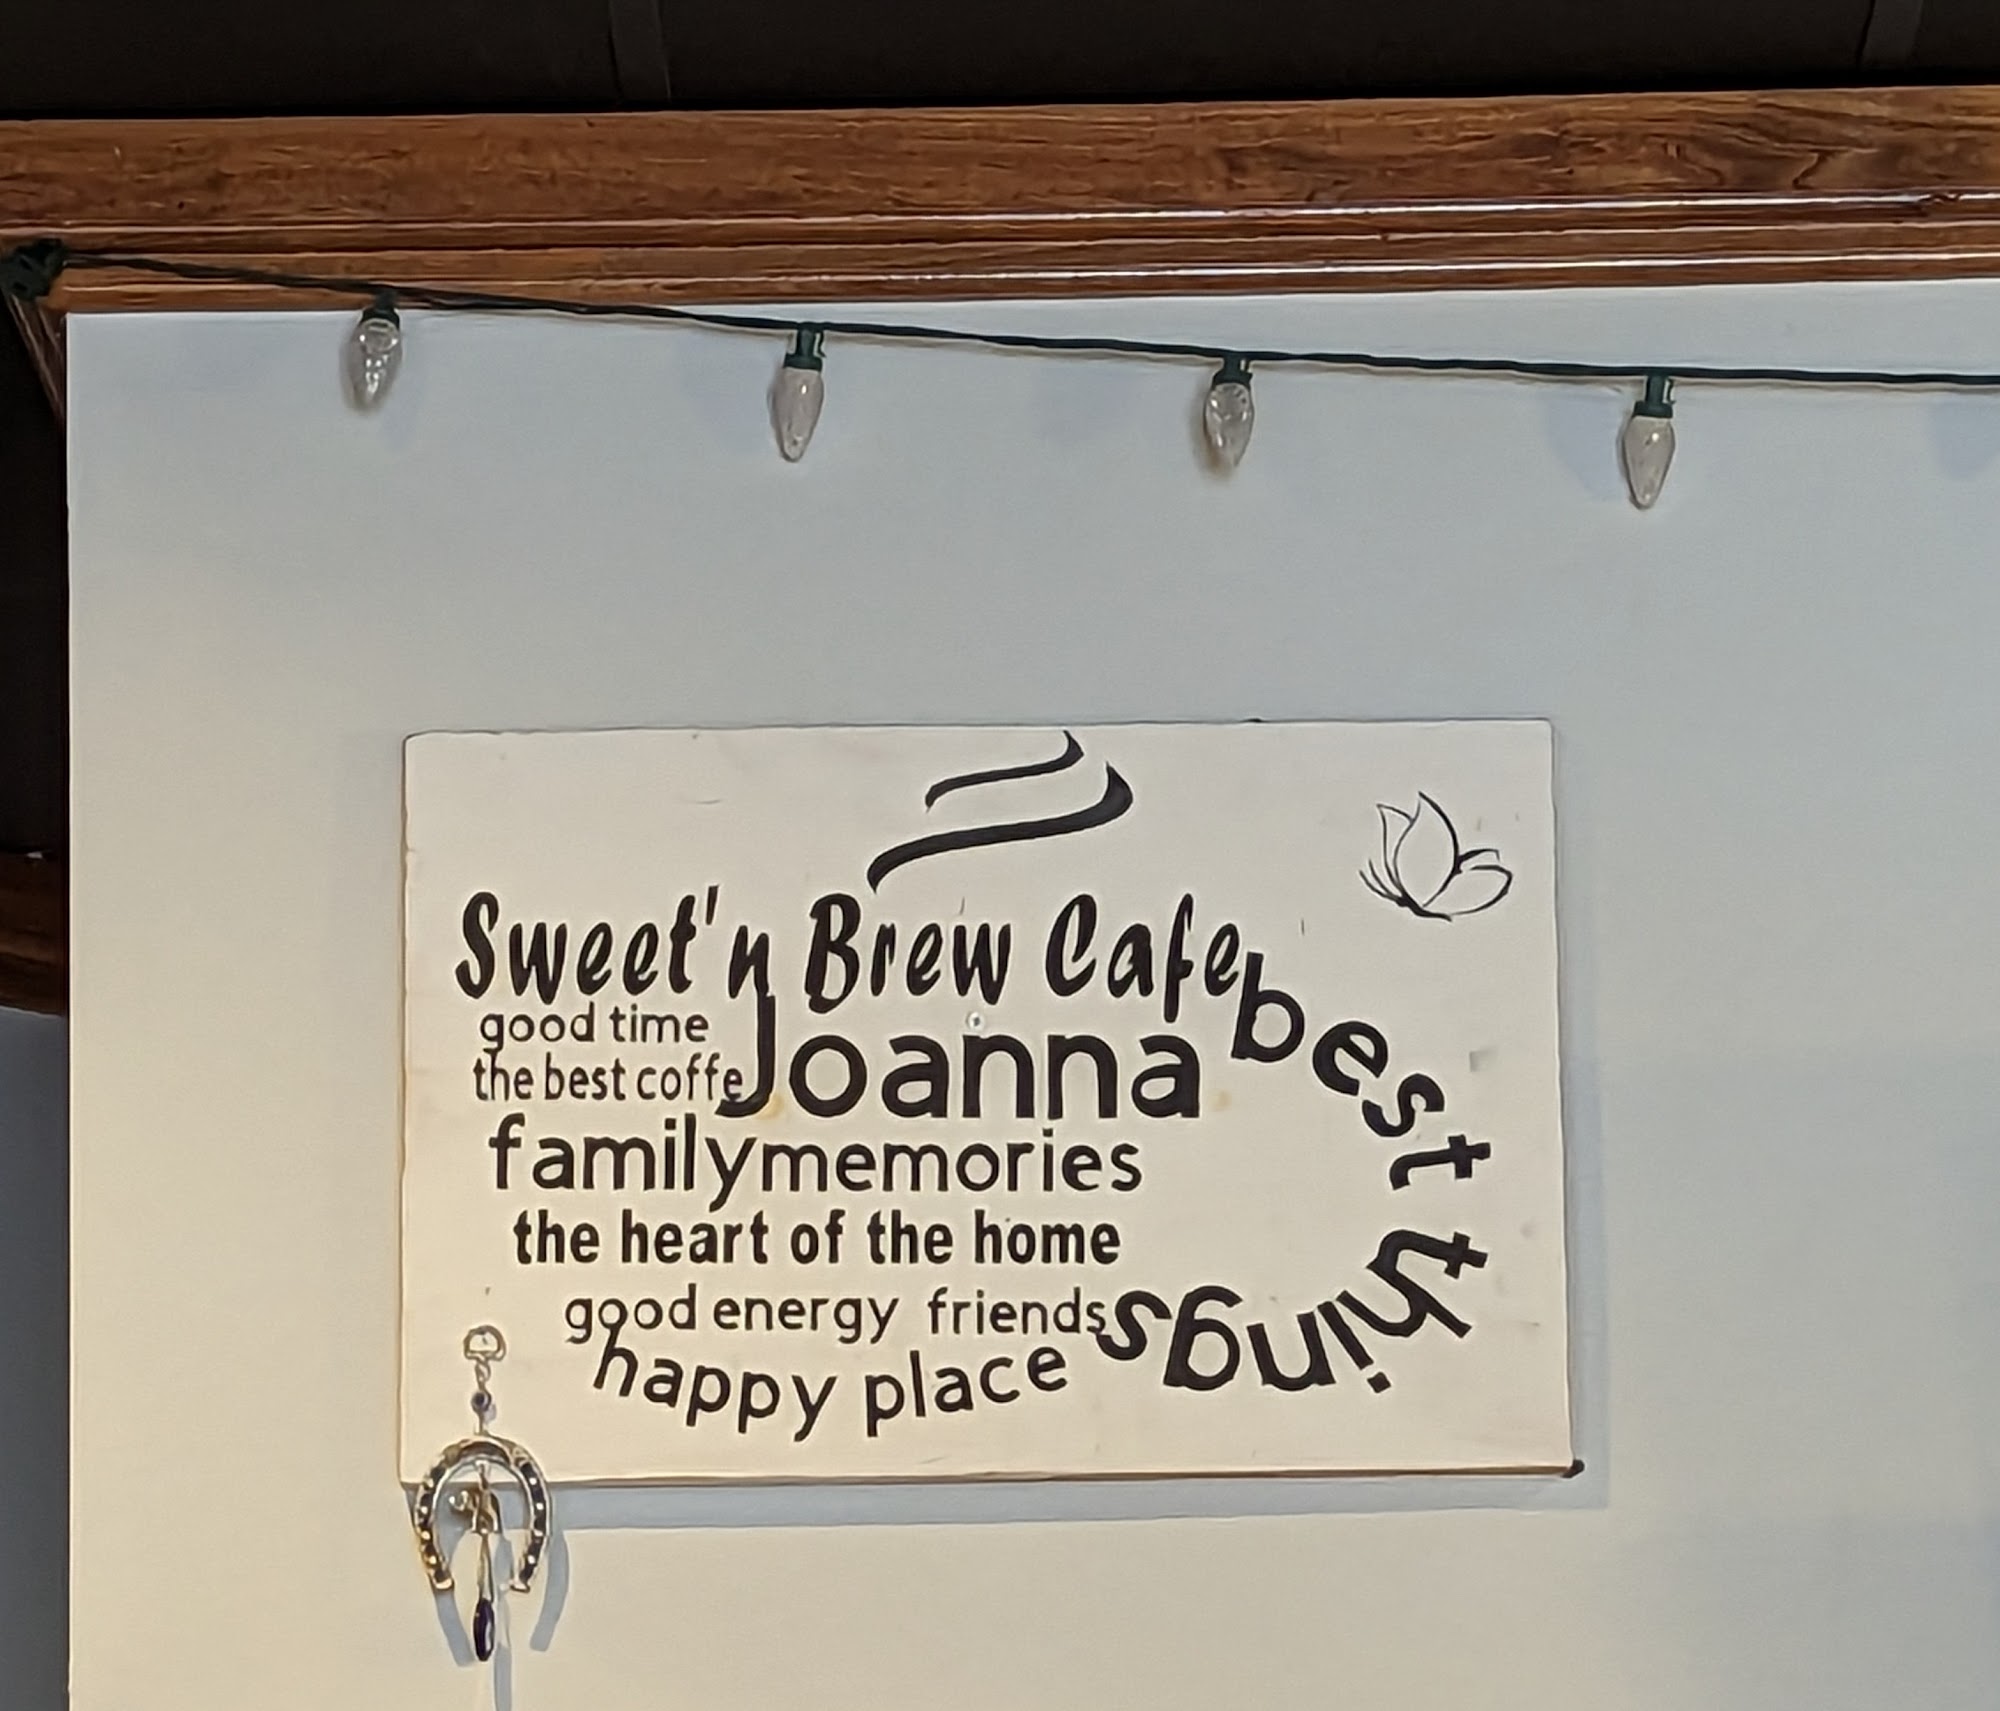 Sweet'n Brew Cafe
good time
the best coffe
Joanna
family memories
the heart of the home
good energy friends
happy place
best things